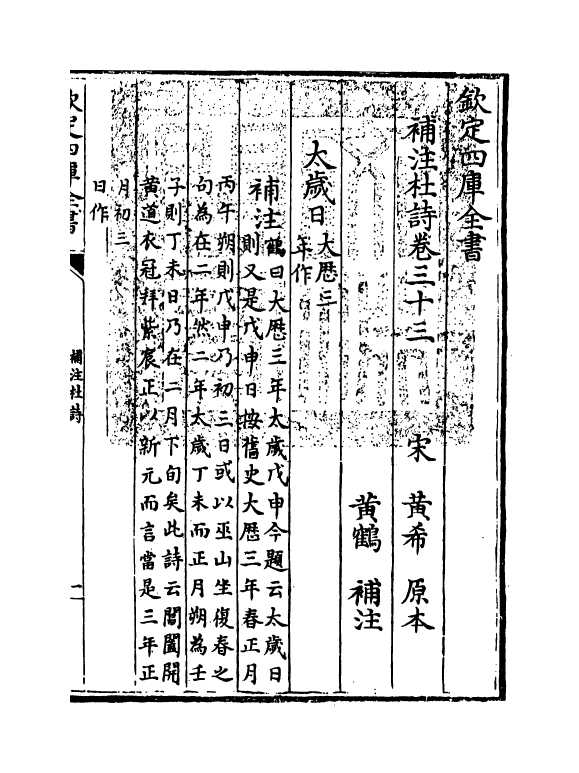 欽定四庫全書
補注杜詩卷三十三
宋 黄希 原本
黄鶴 補注
太歲日
大厯三
年作
補注
鶴曰大厯三年太歲戊申今題云太歲日
則又是戊申日按舊史大厯三年春正月
丙午朔則戊申乃初三日或以巫山坐復春之
句為在二年然二年太歲丁未而正月朔為壬
子則丁未日乃在二月下旬矣此詩云閶闔開
黄道衣冠拜紫宸正以新元而言當是三年正
月初三
日作
欽定四庫全書
補注杜詩
一